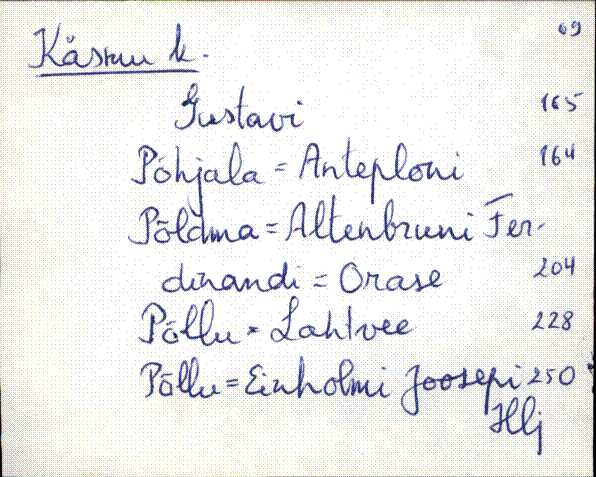 69
Käsmu k.
Gustavi 165
Põhjala = Anteploni 164
Põldma = Altenbruni Fer-
dinandi = Orase 204
Põllu = Lahtvee 228
Põllu = Einholmi Joosepi 250
Hlj